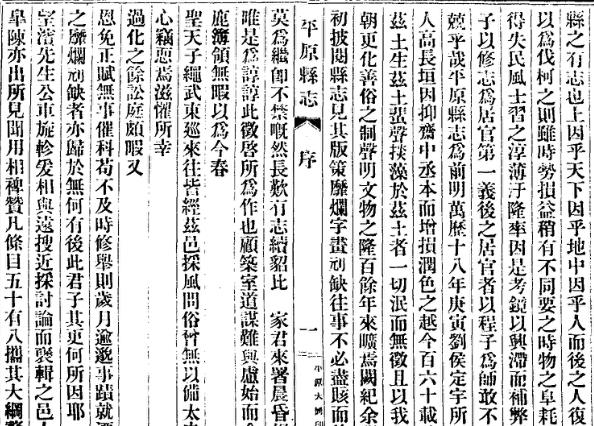 縣之有志也上因乎天下因乎地中因乎人而後之人復
以為伐柯之則雖時勢損益稍有不同要之時物之阜耗
得失民風士習之淳薄汙隆率因是考鏡以興滯而補弊
子以修志為居官第一義後之居官者以程子為師敢不
兢乎哉平原縣志為前明萬歷十八年庚寅劉侯定宇所
人高長垣因抑齋中丞本而增損潤色之越今百六十載
茲土生茲土蜚聲掞藻於茲土者一切泯而無徵且以我
朝更化善俗之制聲明文物之隆百餘年來曠焉闕紀余
初披閱縣志見其版策靡爛字畫刓缺往事不必盡賅而
平原縣志
序
一
平原大興印
莫為繼卽不禁慨然長歎有志續貂比 家君來署晨昏
唯是為諄諄此徵啓所為作也顧築室道謀難與慮始而
鹿簿領無暇以為今春
聖天子繩武東巡來往皆經茲邑採風問俗無以備太
心竊惄焉滋懼所幸
過化之餘訟庭頗暇又
恩免正賦無事催科苟不及時修舉則歲月逾邈事蹟就湮
之靡爛刓缺者亦歸於無何有後此君子其更何所因耶
室濱先生公車旋軫爰相與遠搜近採討論而裒輯之邑
臯陳亦出所見聞用相裨贊凡條目五十有八攜其大綱